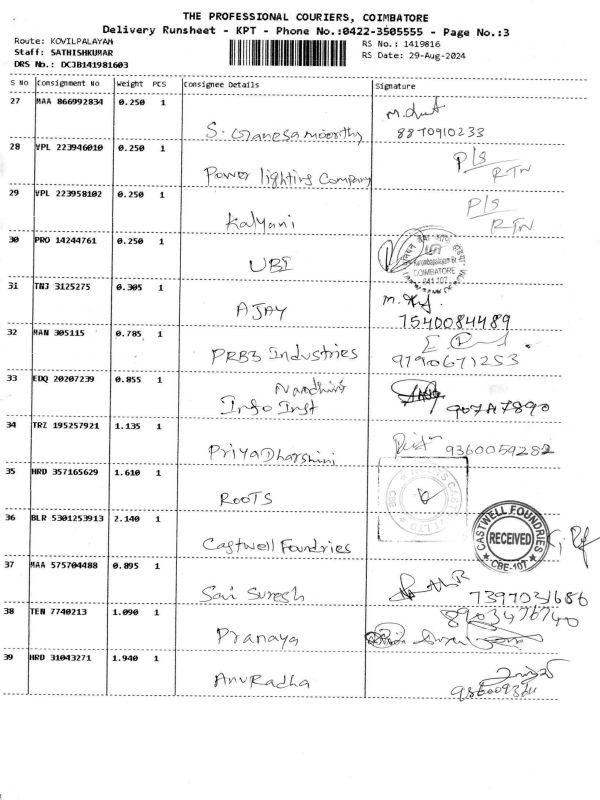 THE PROFESSIONAL COURIERS, COIMBATORE
Delivery Runsheet - KPT - Phone No.:0422-3505555 - Page No.:3
Route: KOVILPALAYAM
Staff: SATHISHKUMAR
DRS No.: DCJB141981603
RS No.: 1419816
RS Date: 29-Aug-2024
S No Consignment No Weight PCS Consignee Details Signature
27 MAA 866992834 0.250 1
S. Ganesamoorthy 8870910233
28 VPL 223946010 0.250 1 P/s
Power lighting Company RTN
29 VPL 223958102 0.250 1 P/s
Kalyani RTN
30 PRO 14244761 0.250 1
UBI
COIMBATORE
641 107
31 TNJ 3125275 0.305 1
AJAY 7540084489
32 MAN 305115 0.785 1
PRB3 Industries 9190671253
33 EDQ 20207239 0.855 1 Nandhini
Info Inst 907A7890
34 TRZ 195257921 1.135 1
PriyaDharshini 9360059282
35 HRD 357165629 1.610 1
ROOTS
36 BLR 5301253913 2.140 1
Castwell Foundries
CASTWELL FOUNDRIES
RECEIVED
CBE-107
37 MAA 575704488 0.895 1
Sai Suresh 7397031686
38 TEN 7740213 1.090 1 8903476740
Pranaya
39 HRD 31043271 1.940 1
AnuRadha